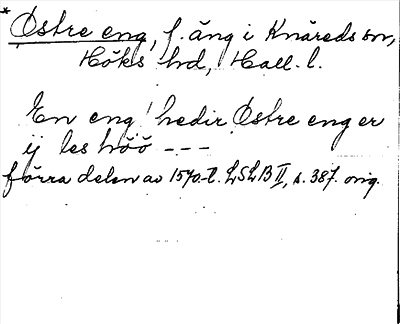 * Östre eng, f. äng i Knäreds sn,
Höks hd, Hall. l.
En eng hedir Østre eng er
ij les höö ---
förra delen av 1570-t. LSLB II, s. 387. orig.